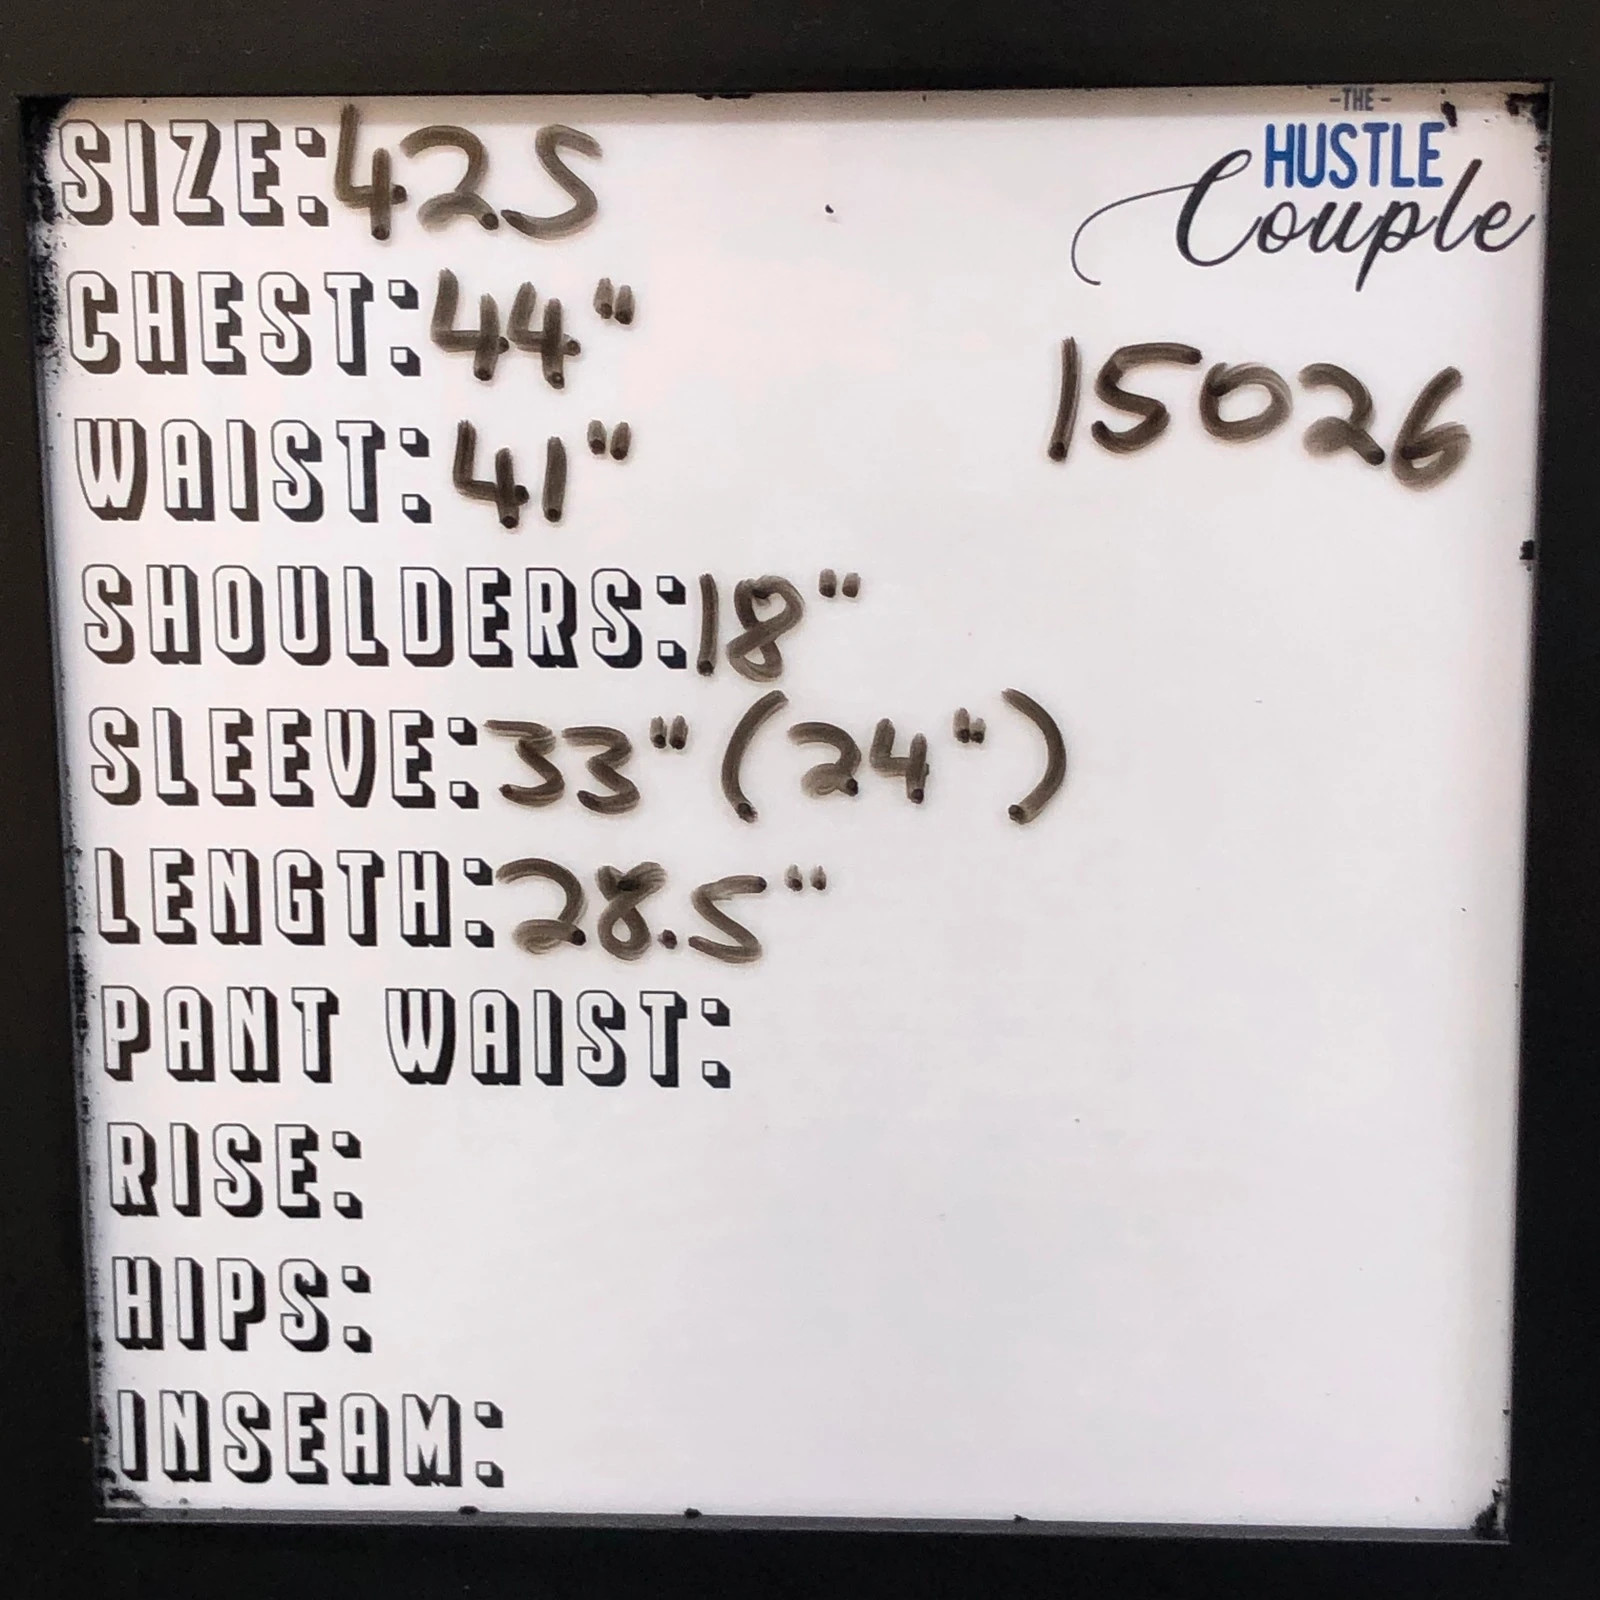 -THE-
HUSTLE
Couple
15026
SIZE: 42S
CHEST: 44"
WAIST: 41"
SHOULDERS: 18"
SLEEVE: 33" (24")
LENGTH: 28.5"
PANT WAIST:
RISE:
HIPS:
INSEAM: